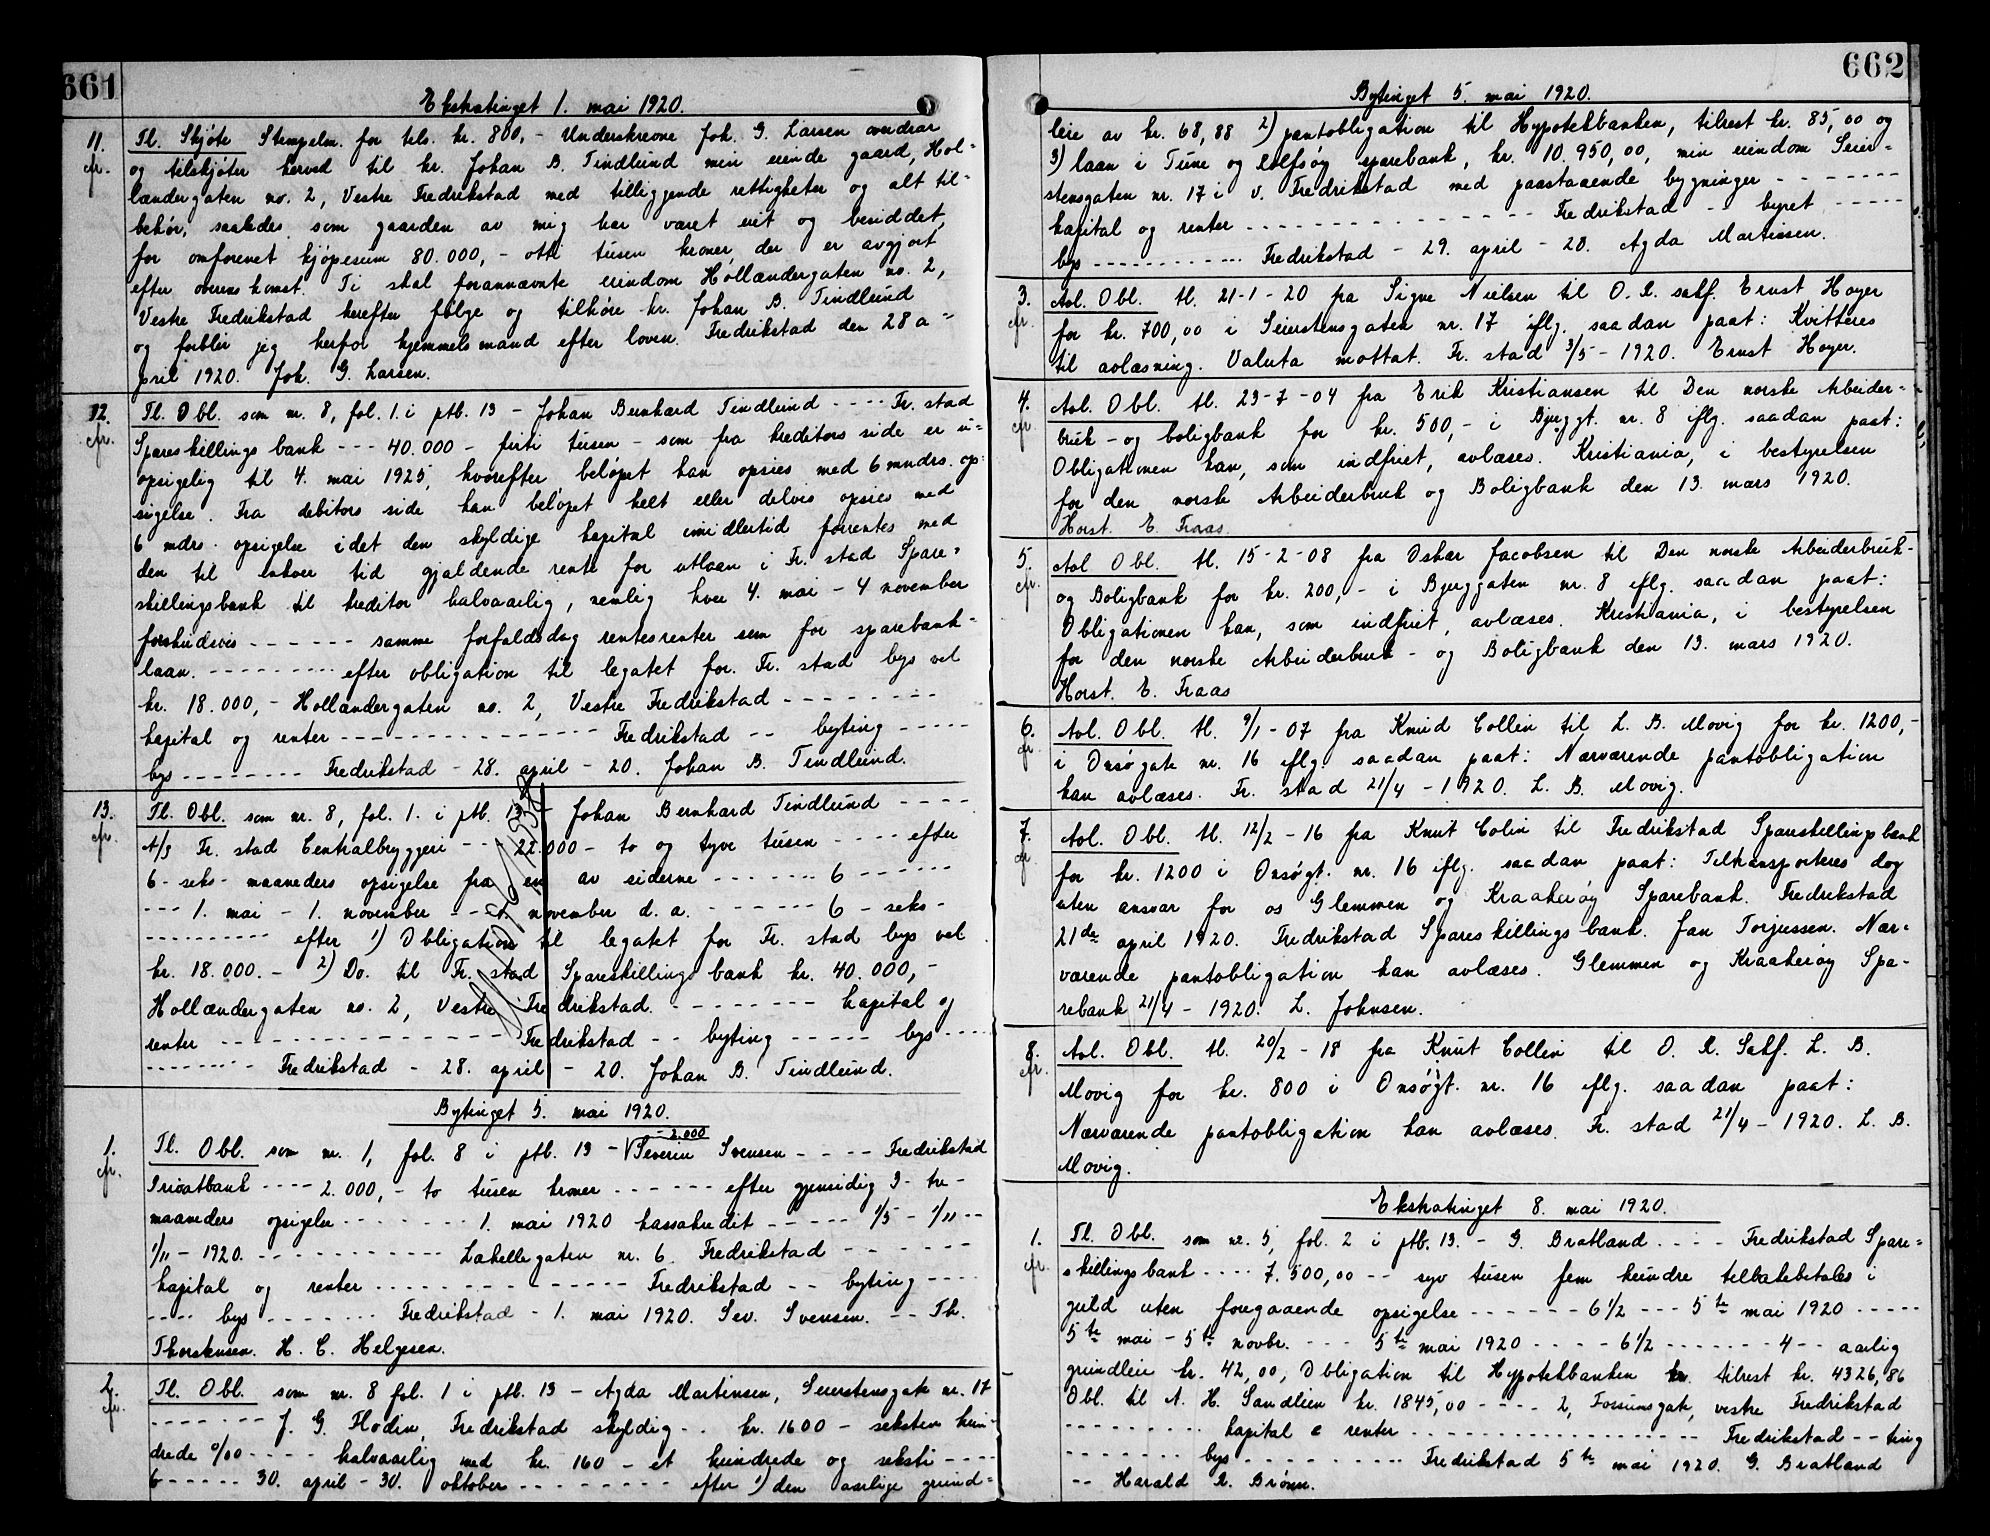 661
Ekstratinget 1. mai 1920.
11. Tl. Skjøte Stempelm. for tils. kr. 800,- Underskrevne Joh. G. Larsen avndrar
cfr. og tilskjøter herved til hr. Johan B. Tindlund min eiende gaard, Hol-
lændergaten no. 2, Vestre Fredrikstad med tilliggende rettigheter og alt til-
behør, saaledes som gaarden av mig har været eiet og besiddet,
for omforenet kjøpesum 80.000,- otti tusen kroner, der er avgjort
efter overenskomst. Ti skal forannævnte eiendom Hollændergaten no. 2,
Vestre Fredrikstad herefter følge og tilhøre hr. Johan B. Tindlund
og forblir jeg herfor hjemmelsmand efter loven. Fredrikstad den 28 a-
pril 1920. Joh. G. Larsen.
12. Tl. Obl. som nr. 8, fol. 1. i ptb. 13 - Johan Bernhard Tindlund ---- Fr. stad
cfr. Spareskillings bank --- 40.000 - firti tusen - som fra kreditors side er u-
opsigelig til 4. mai 1925, hvorefter beløpet kan opsies med 6 mndrs. op-
sigelse. Fra debitors side kan beløpet helt eller delvis opsies med
6 mdrs. opsigelse idet den skyldige kapital imidlertid forrentes med
den til enhver tid gjældende rente for utlaan i Fr. stad Spare-
skillingsbank til kreditor halvaarlig, nemlig hver 4. mai - 4 november
forskudsvis ------ samme forfaldsdag rentesrenter som for sparebank-
laan. --------- efter obligation til legatet for Fr. stad bys vel
kr. 18.000,- Hollændergaten no. 2, Vestre Fredrikstad --------
kapital og renter --------------- Fredrikstad -- byting -----
bys -------- Fredrikstad - 28. april - 20. Johan B. Tindlund.
13. Tl. Obl. som nr. 8, fol. 1. i ptb. 13 - Johan Bernhard Tindlund ----
cfr. A/S Fr. stad Centralbryggeri --- 22.000 - to og tyve tusen --- efter
6 - seks - maaneders opsigelse fra en av siderne -------- 6 ------
--- 1. mai - 1. november --- 1. november d. a. ------- 6 - seks -
---------- efter 1) Obligation til legatet for Fr. stad bys vel
kr. 18.000.- 2) Do. til Fr. stad Spareskillings bank kr. 40.000,-
Hollændergaten no. 2, Vestre Fredrikstad. -------- kapital og
renter ---------------- Fredrikstad -- byting ----- bys ----
-------- Fredrikstad - 28. april - 20. Johan B. Tindlund.
Bytinget 5. mai 1920.
- 2.000
1. Tl. Obl. som nr. 1, fol. 8 i ptb. 13 - Severin Svensen ---- Fredrikstad
cfr. Privatbank ---- 2.000,- to tusen kroner ------ efter gjensidig 3- tre-
maaneders opsigelse ------- 1. mai 1920 kassakredit ----- 1/5 - 1/11 --
1/11 - 1920. ------------ Labellegaten nr. 6 Fredrikstad ------
kapital og renter -------------- Fredrikstad -- byting ----
---- bys ------- Fredrikstad - 1. mai 1920. Sev. Svensen. -- Th.
Thorstensen. H. C. Helgesen.
2. Tl. Obl. som nr. 8 fol. 1 i ptb. 13 - Agda Martinsen, Seierstensgate nr. 17
cfr. ------- J. G. Flodin, Fredrikstad skyldig -- kr. 1600 - seksten hun-
drede 0/00 ---- halvaarlig med kr. 160 - et hundrede og seksti ----
6 ----- 30. april - 30. oktober -------- efter 1) den aarlige grund-
662
Bytinget 5. mai 1920.
leie av kr. 68,88 2) pantobligation til Hypotekbanken, tilrest kr. 85,00 og
3) laan i Tune og Rolfsøy sparebank, kr. 10.950,00, min eiendom Seier-
stensgaten nr. 17 i v. Fredrikstad med paastaaende bygninger -------
kapital og renter -------------- Fredrikstad -- byret -----
bys ------------- Fredrikstad - 29. april - 20. Agda Martinsen.
3. Avl. Obl. tl. 21-1-20 fra Signe Nielsen til O. R. sakf. Ernst Hoyer
cfr. for kr. 700,00 i Seierstensgaten nr. 17 iflg. saadan paat: Kvitteres
til avlæsning. Valuta mottat. Fr. stad 3/5 - 1920. Ernst Hoyer.
4. Avl. Obl. tl. 23-7-04 fra Erik Kristiansen til Den norske Arbeider-
cfr. bruk- og boligbank for kr. 500,- i Bjerggt. nr. 8 iflg. saadan paat:
Obligationen kan, som indfriet, avlæses. Kristiania, i bestyrelsen
for den norske Arbeiderbruk og Boligbank den 13. mars 1920.
Horst. E. Fraas.
5. Avl Obl. tl. 15-2-08 fra Oskar Jacobsen til Den norske Arbeiderbruk-
cfr. og Boligbank for kr. 200,- i Bjerggaten nr. 8 iflg. saadan paat:
Obligationen kan, som indfriet, avlæses. Kristiania, i bestyrelsen
for den norske Arbeiderbruk- og Boligbank den 13. mars 1920.
Horst. E. Fraas
6. Avl. Obl. tl. 9/1-07 fra Knud Collin til L. B. Movig for kr. 1200,-
cfr. i Onsøgate nr. 16 iflg. saadan paat: Nærværende pantobligation
kan avlæses. Fr. stad 21/4 - 1920. L. B. Movig.
7. Avl. Obl. tl. 12/2 - 16 fra Knut Colin til Fredrikstad Spareskillingsbank
cfr. for kr. 1200 i Onsøgt. nr. 16 iflg. saadan paat: Tiltransporteres dog
uten ansvar for os Glemmen og Kraakerøy Sparebank. Fredrikstad
21de april 1920. Fredrikstad Spareskillingsbank. Jan Torjussen. Nær-
værende pantobligation kan avlæses. Glemmen og Kraakerøy Spa-
rebank 21/4 - 1920. L. Johnsen.
8. Avl. Obl. tl. 20/2 - 18 fra Knut Collin til O. R. Sakf. L. B.
cfr. Movig for kr. 800 i Onsøgt. nr. 16 iflg. saadan paat:
Nærværende pantobligation kan avlæses. Fr. stad 21/4 - 1920. L. B.
Movig.
Ekstratinget 8. mai 1920.
1. Tl. Obl. som nr. 5, fol. 2 i ptb. 13. - G. Bratland ---- Fredrikstad Spare-
cfr. skillingsbank ---- 7.500,00 -- syv tusen fem hundre tilbakebetales i
guld uten foregaaende opsigelse ------ 6 1/2 --- 5te mai 1920 -----
5te mai - 5te novbr. --- 5te mai 1920 ---- 6 1/2 ------- 4 -- aarlig
grundleie kr. 42,00, Obligation til Hypotekbanken tilrest kr. 4326,86
Obl. til A. H. Sandlien kr. 1845,00 ---- 2, Forsumsgate, vestre Fredrikstad
-------- kapital & renter ---------------- Fredrikstad -- ting
-------- bys --------- Fredrikstad 5te mai 1920. G. Bratland
-- Harald R. Brønn.